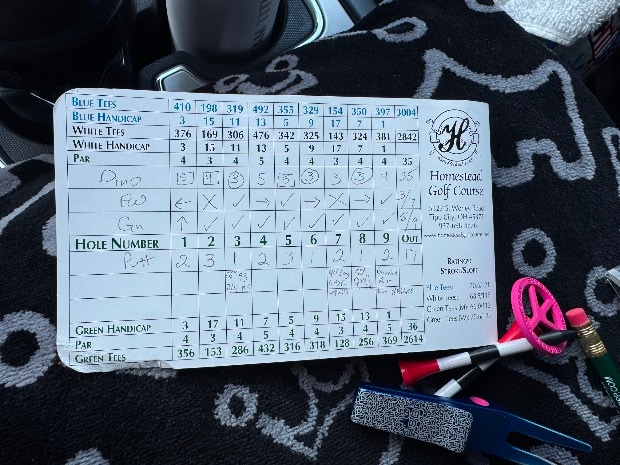 BLUE TEES 410 198 319 492 355 329 154 350 397 3004
BLUE HANDICAP 3 15 11 13 5 9 17 7 1
WHITE TEES 376 169 306 476 342 325 143 324 381 2842
WHITE HANDICAP 3 15 11 13 5 9 17 7 1
PAR 4 3 4 5 4 4 3 4 4 35
Dino 5 4 3 5 5 3 3 35
FW ← X ✓ ← → ✓ X → ✓ 3/7
Gn ↑ ✓ ✓ ✓ ✓ ✓ ✓
HOLE NUMBER 1 2 3 4 5 6 7 8 9 OUT
Putt 2 3 1 2 3 1 2 1 2 17
GREEN HANDICAP 3 17 11 7 5 9 15 13 1
PAR 4 3 4 5 4 4 3 4 5 36
GREEN TEES 356 153 286 432 316 318 128 256 369 2614
H
Homestead
Golf Course
5327 S. Worley Road
Tipp City, OH 45371
RATINGS:
STROKE/SLOPE
Blue Tees:
White Tees:
Green Tees
Green Tees